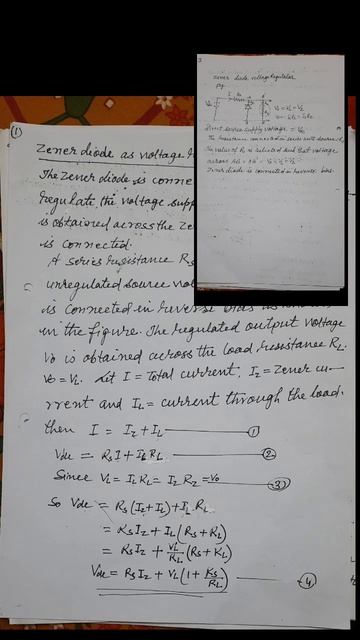 (1)
Zener diode as voltage
The Zener diode is conne
regulate the voltage supp
is obtained across the ze
is connected.
A series resistance Rs
unregulated source vol
is connected in reverse bias as
in the figure. The regulated output voltage
Vo is obtained across the load resistance RL.
Vo = VL. Let I = Total current, Iz = Zener cu-
rrent and IL = current through the load.
then I = Iz + IL ——— (1)
Vdc = RsI + ILRL ——— (2)
Since VL = ILRL = IzRz = Vo ——— (3)
So Vdc = Rs(Iz+IL) + IL RL
= RsIz + IL(Rs+RL)
= RsIz + VL/RL (Rs+RL)
Vdc = RsIz + VL(1 + Rs/RL) ——— (4)
Zener diode voltage Regulator
fig
Direct source supply voltage = Vdc
The resistance connected in series with source = Rs
The value of Rs is selected such that voltage
Zener diode is connected in reverse bias.